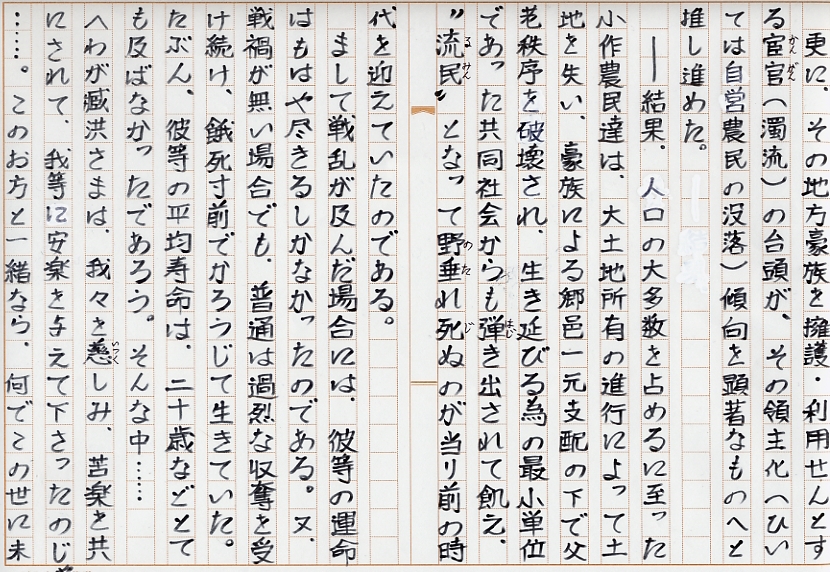 更に、その地方豪族を擁護・利用せんとす
る宦官（濁流）の台頭が、その領主化（ひい
ては自営農民の没落）傾向を顕著なものへと
推し進めた。
──結果。人口の大多数を占めるに至った
小作農民達は、大土地所有の進行によって土
地を失い、豪族による郷邑一元支配の下で父
老秩序を破壊され、生き延びる為の最小単位
であった共同社会からも弾き出されて飢え、
〝流民〟となって野垂れ死ぬのが当り前の時
代を迎えていたのである。
まして戦乱が及んだ場合には、彼等の運命
はもはや尽きるしかなかったのである。又、
戦禍が無い場合でも、普通は過烈な収奪を受
け続け、餓死寸前でかろうじて生きていた。
たぶん、彼等の平均寿命は、二十歳などとて
も及ばなかったであろう。そんな中……
へわが臧洪さまは、我々を慈しみ、苦楽を共
にされて、我等に安楽を与えて下さったのじ
……。このお方と一緒なら、何でこの世に未